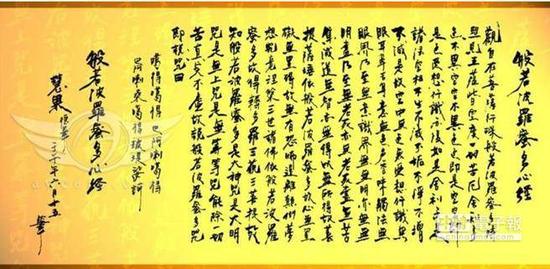 般若波羅蜜多心經
觀自在菩薩行深般若波羅蜜多時
照見五蘊皆空度一切苦厄舍利子
色不異空空不異色色即是空空即
是色受想行識亦復如是舍利子是
諸法空相不生不滅不垢不淨不增
不減是故空中無色無受想行識無
眼耳鼻舌身意無色聲香味觸法無
眼界乃至無意識界無無明亦無無
明盡乃至無老死亦無老死盡無苦
集滅道無智亦無得以無所得故菩
提薩埵依般若波羅蜜多故心無罣
礙無罣礙故無有恐怖遠離顛倒夢
想究竟涅槃三世諸佛依般若波羅
蜜多故得阿耨多羅三藐三菩提故
知般若波羅蜜多是大神咒是大明
咒是無上咒是無等等咒能除一切
苦真實不虛故說般若波羅蜜多咒
即說咒曰
得 得 巴阿喇 得
般若波羅蜜多心經
慧果
十五